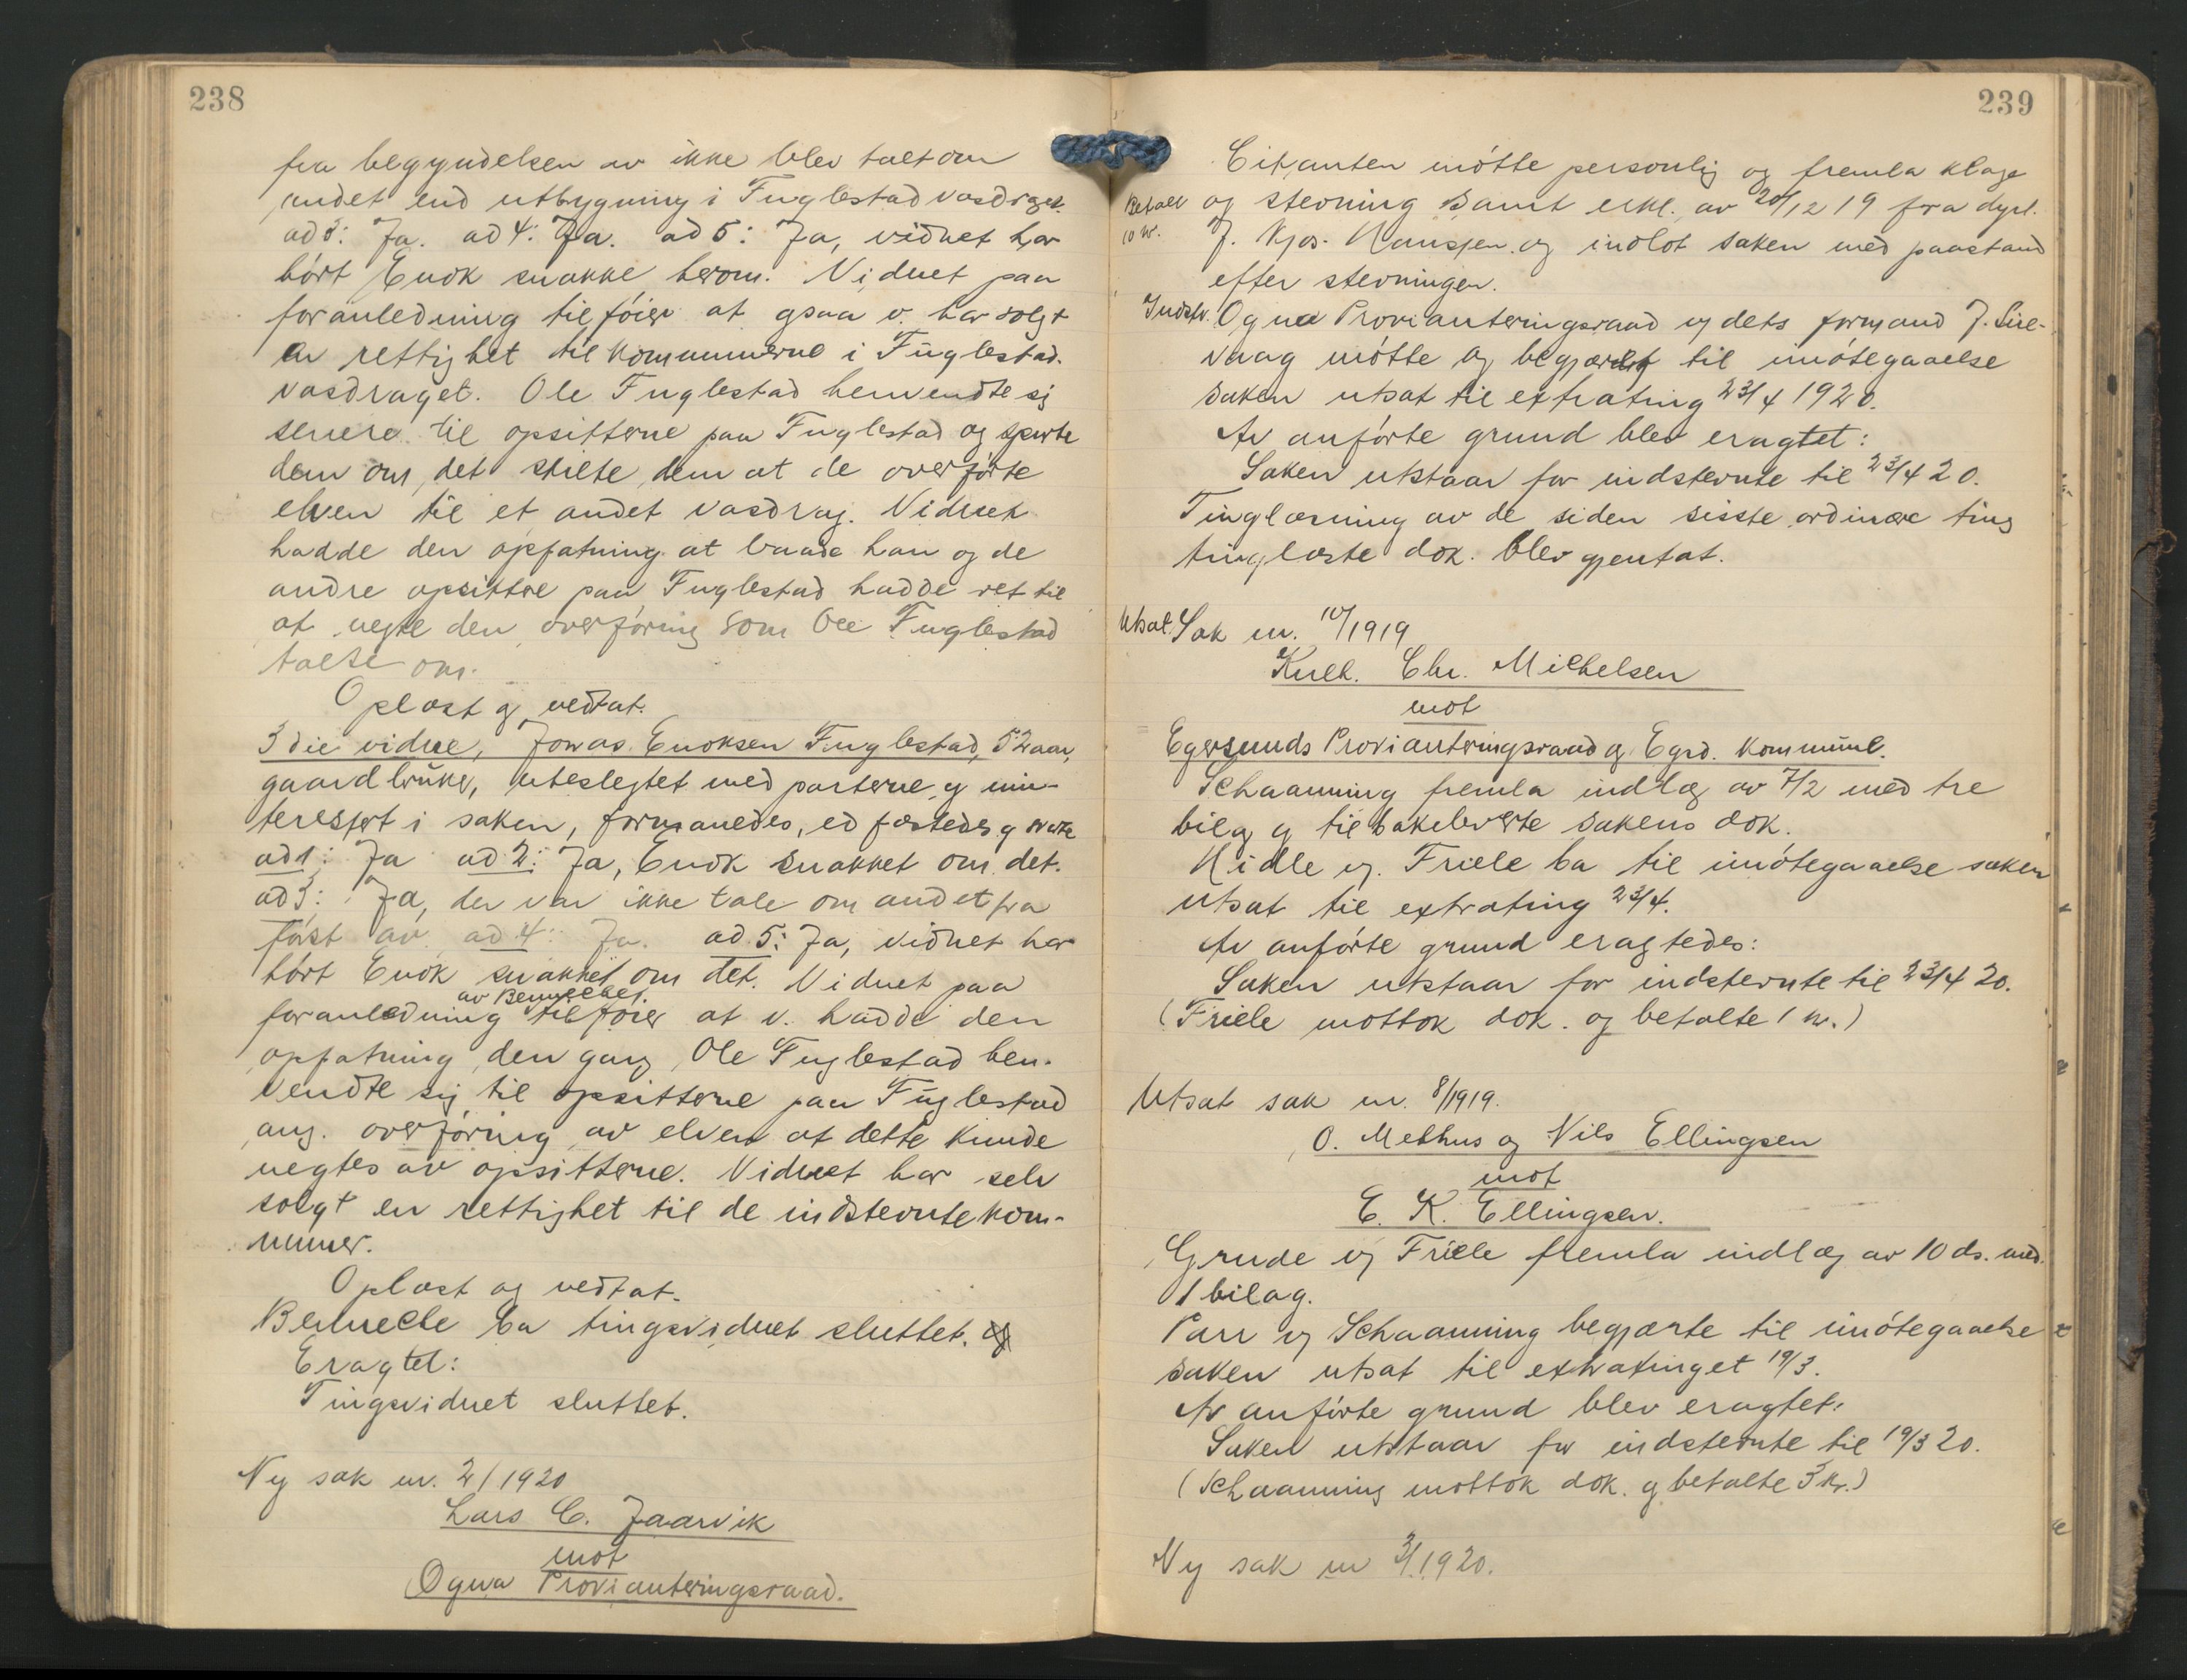 238
fra begyndelsen av ikke blev talt om
andet end utbygning i Fuglestad vasdraget.
ad 3: Ja. ad 4: Ja. ad 5: Ja, vidnet har
hørt Enok snakke herom. Vidnet paa
foranledning tilføier at gsaa v. har solgt
en rettighet til kommunerne i Fuglestad-
vasdraget. Ole Fuglestad henvendte sig
senere til opsitterne paa Fuglestad og spurte
dem om det skilte dem at de overførte
elven til et andet vasdrag. Vidnet
hadde den opfatning at baade han og de
andre opsittere paa Fuglestad hadde ret til
at negte den overføring som Ole Fuglestad
talte om.
Oplæst og vedtat.
3die vidne, Jonas Enoksen Fuglestad, 52 aar,
gaardbruker, ubeslegtet med parterne og uin-
teressert i saken, formanedes, ed fæstedes og svarte
ad 1: Ja ad 2: Ja, Enok snakket om det.
ad 3: Ja, der var ikke tale om andet fra
først av. ad 4: Ja. ad 5: Ja, vidnet har
hørt Enok snakket om det. Vidnet paa
av Benneche
foranledning tilføier at v. hadde den
opfatning den gang Ole Fuglestad hen-
vendte sig til opsitterne paa Fuglestad
ang. overføring av elven at dette kunde
negtes av opsitterne. Vidnet har selv
solgt en rettighet til de indstevnte kom-
muner.
Oplæst og vedtat.
Benneche ba tingsvidnet sluttet.
Eragtet:
Tingsvidnet sluttet.
Ny sak nr. 2/1920
Lars C. Jaarvik
mot
Ogna Provianteringsraad.
239
Citanten møtte personlig og fremla klage
Betalt
10 kr.
og stevning samt erkl. av 20/12 19 fra dyrl.
J. Kjos-Hanssen og indlot saken med paastand
efter stevningen.
Indstv. Ogna Provianteringsraad v dets formand J. Sire-
vaag møtte og begjærte til imøtegaaelse
saken utsat til extrating 23/4 1920.
Av anførte grund blev eragtet:
Saken utstaar for indstevnte til 23/4 20.
Tinglæsning av de siden sisste ordinære ting
tinglæste dok. blev gjentat.
Utsat Sak nr. 10/1919
Chr. Michelsen
mot
Egersunds Provianteringsraad og Egrd. kommune.
Schaanning fremla indlæg av 7/2 med tre
bilag og tilbakeleverte sakens dok.
Hidle v. Friele ba til imøtegaaelse saken
utsat til extrating 23/4.
Av anførte grund eragtedes:
Saken utstaar for indstevnte til 23/4 20.
(Friele mottok dok. og betalte 1 kr.)
Utsat sak nr. 8/1919.
O. Methus og Nils Ellingsen
mot
E. K. Ellingsen.
Grude v Friele fremla indlæg av 10 ds. med
1 bilag.
Parr v Schaanning begjærte til imøtegaaelse
saken utsat til extratinget 19/3.
Av anførte grund blev eragtet:
Saken utstaar for indstevnte til 19/3 20.
(Schaanning mottok dok. og betalte 3 kr.)
Ny sak nr 3/1920.